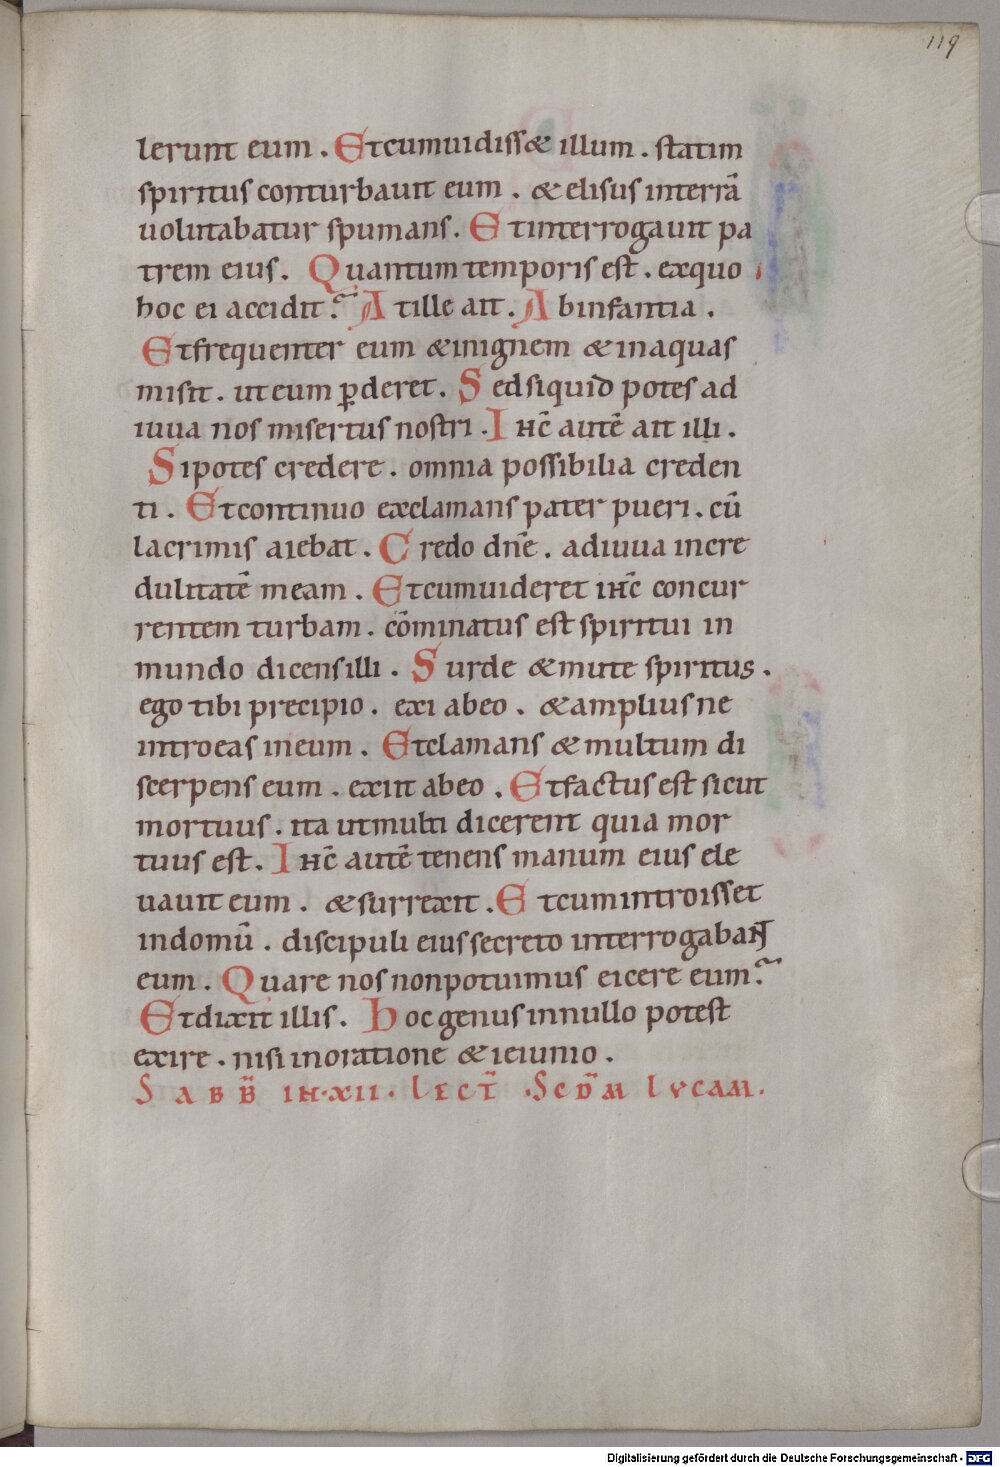 119
lerunt eum . Et cum uidiss& illum . statim
spiritus conturbauit eum . & elisus in terrā
uolutabatur spumans . Et interrogauit pa
trem eius . Quantum temporis est . ex quo
hoc ei accidit ? At ille ait . Ab infantia .
Et frequenter eum & in ignem & in aquas
misit . ut eum ꝑderet . Sed si quid potes ad
iuua nos misertus nostri . Ihc̄ autē ait illi .
Si potes credere . omnia possibilia creden
ti . Et continuo exclamans pater pueri . cū
lacrimis aiebat . Credo dn̄e . adiuua incre
dulitatē meam . Et cum uideret ihc̄ concur
rentem turbam . cōminatus est spiritui in
mundo dicens illi . Surde & mute spiritus .
ego tibi precipio . exi ab eo . & amplius ne
introeas in eum . Et clamans & multum di
scerpens eum . exiit ab eo . Et factus est sicut
mortuus . ita ut multi dicerent quia mor
tuus est . Ihc̄ autē tenens manum eius ele
uauit eum . & surrexit . Et cum introisset
in domū . discipuli eius secreto interrogabant
eum . Quare nos non potuimus eicere eum ?
Et dixit illis . Hoc genus in nullo potest
exire . nisi in oratione & ieiunio .
SABB̄ IN · XII · LECT̄ · SCD̄M LVCAM .
Digitalisierung gefördert durch die Deutsche Forschungsgemeinschaft - DFG